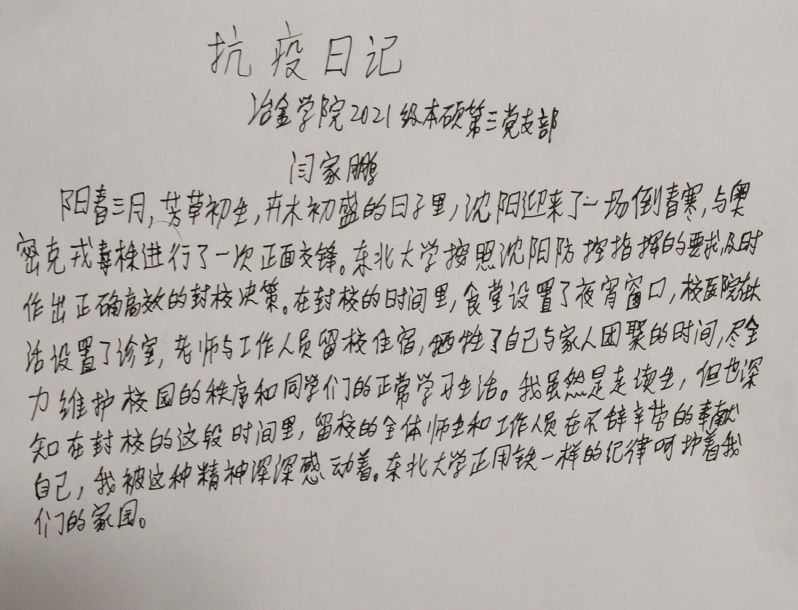 抗疫日记
冶金学院2021级本硕第三党支部
闫家鹏
阳春三月,芳草初生,卉木初盛的日子里,沈阳迎来了一场倒春寒,与奥
密克戎毒株进行了一次正面交锋。东北大学按照沈阳防控指挥的要求,及时
作出正确高效的封校决策。在封校的时间里,食堂设置了夜宵窗口,校医院在大
活设置了诊室,老师与工作人员留校住宿,牺牲了自己与家人团聚的时间,尽全
力维护校园的秩序和同学们的正常学习生活。我虽然是走读生,但也深
知在封校的这段时间里,留校的全体师生和工作人员在不辞辛劳的奉献
自己,我被这种精神深深感动着。东北大学正用铁一样的纪律呵护着我
们的家园。